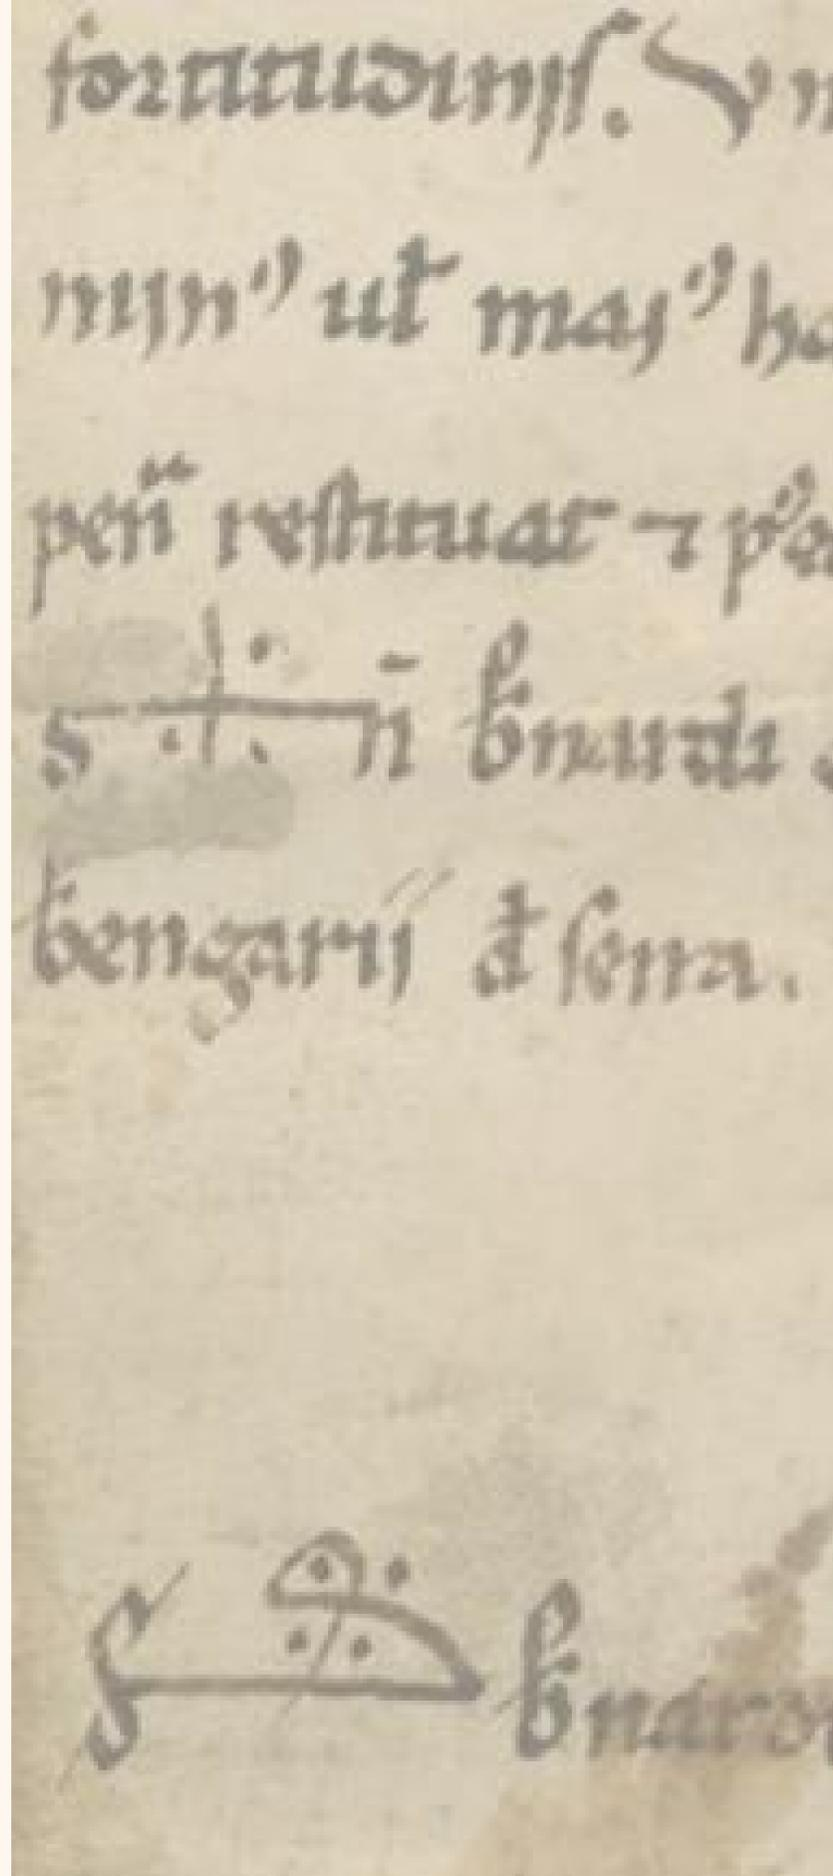 fortitudinis. Vn
mijn⁹ ul̄ maj⁹ ho
pen̄ restituat ⁊ p⁹e
S+n̄ b̄nardi
b̄engarii d̄ serra.
S b̄nardi